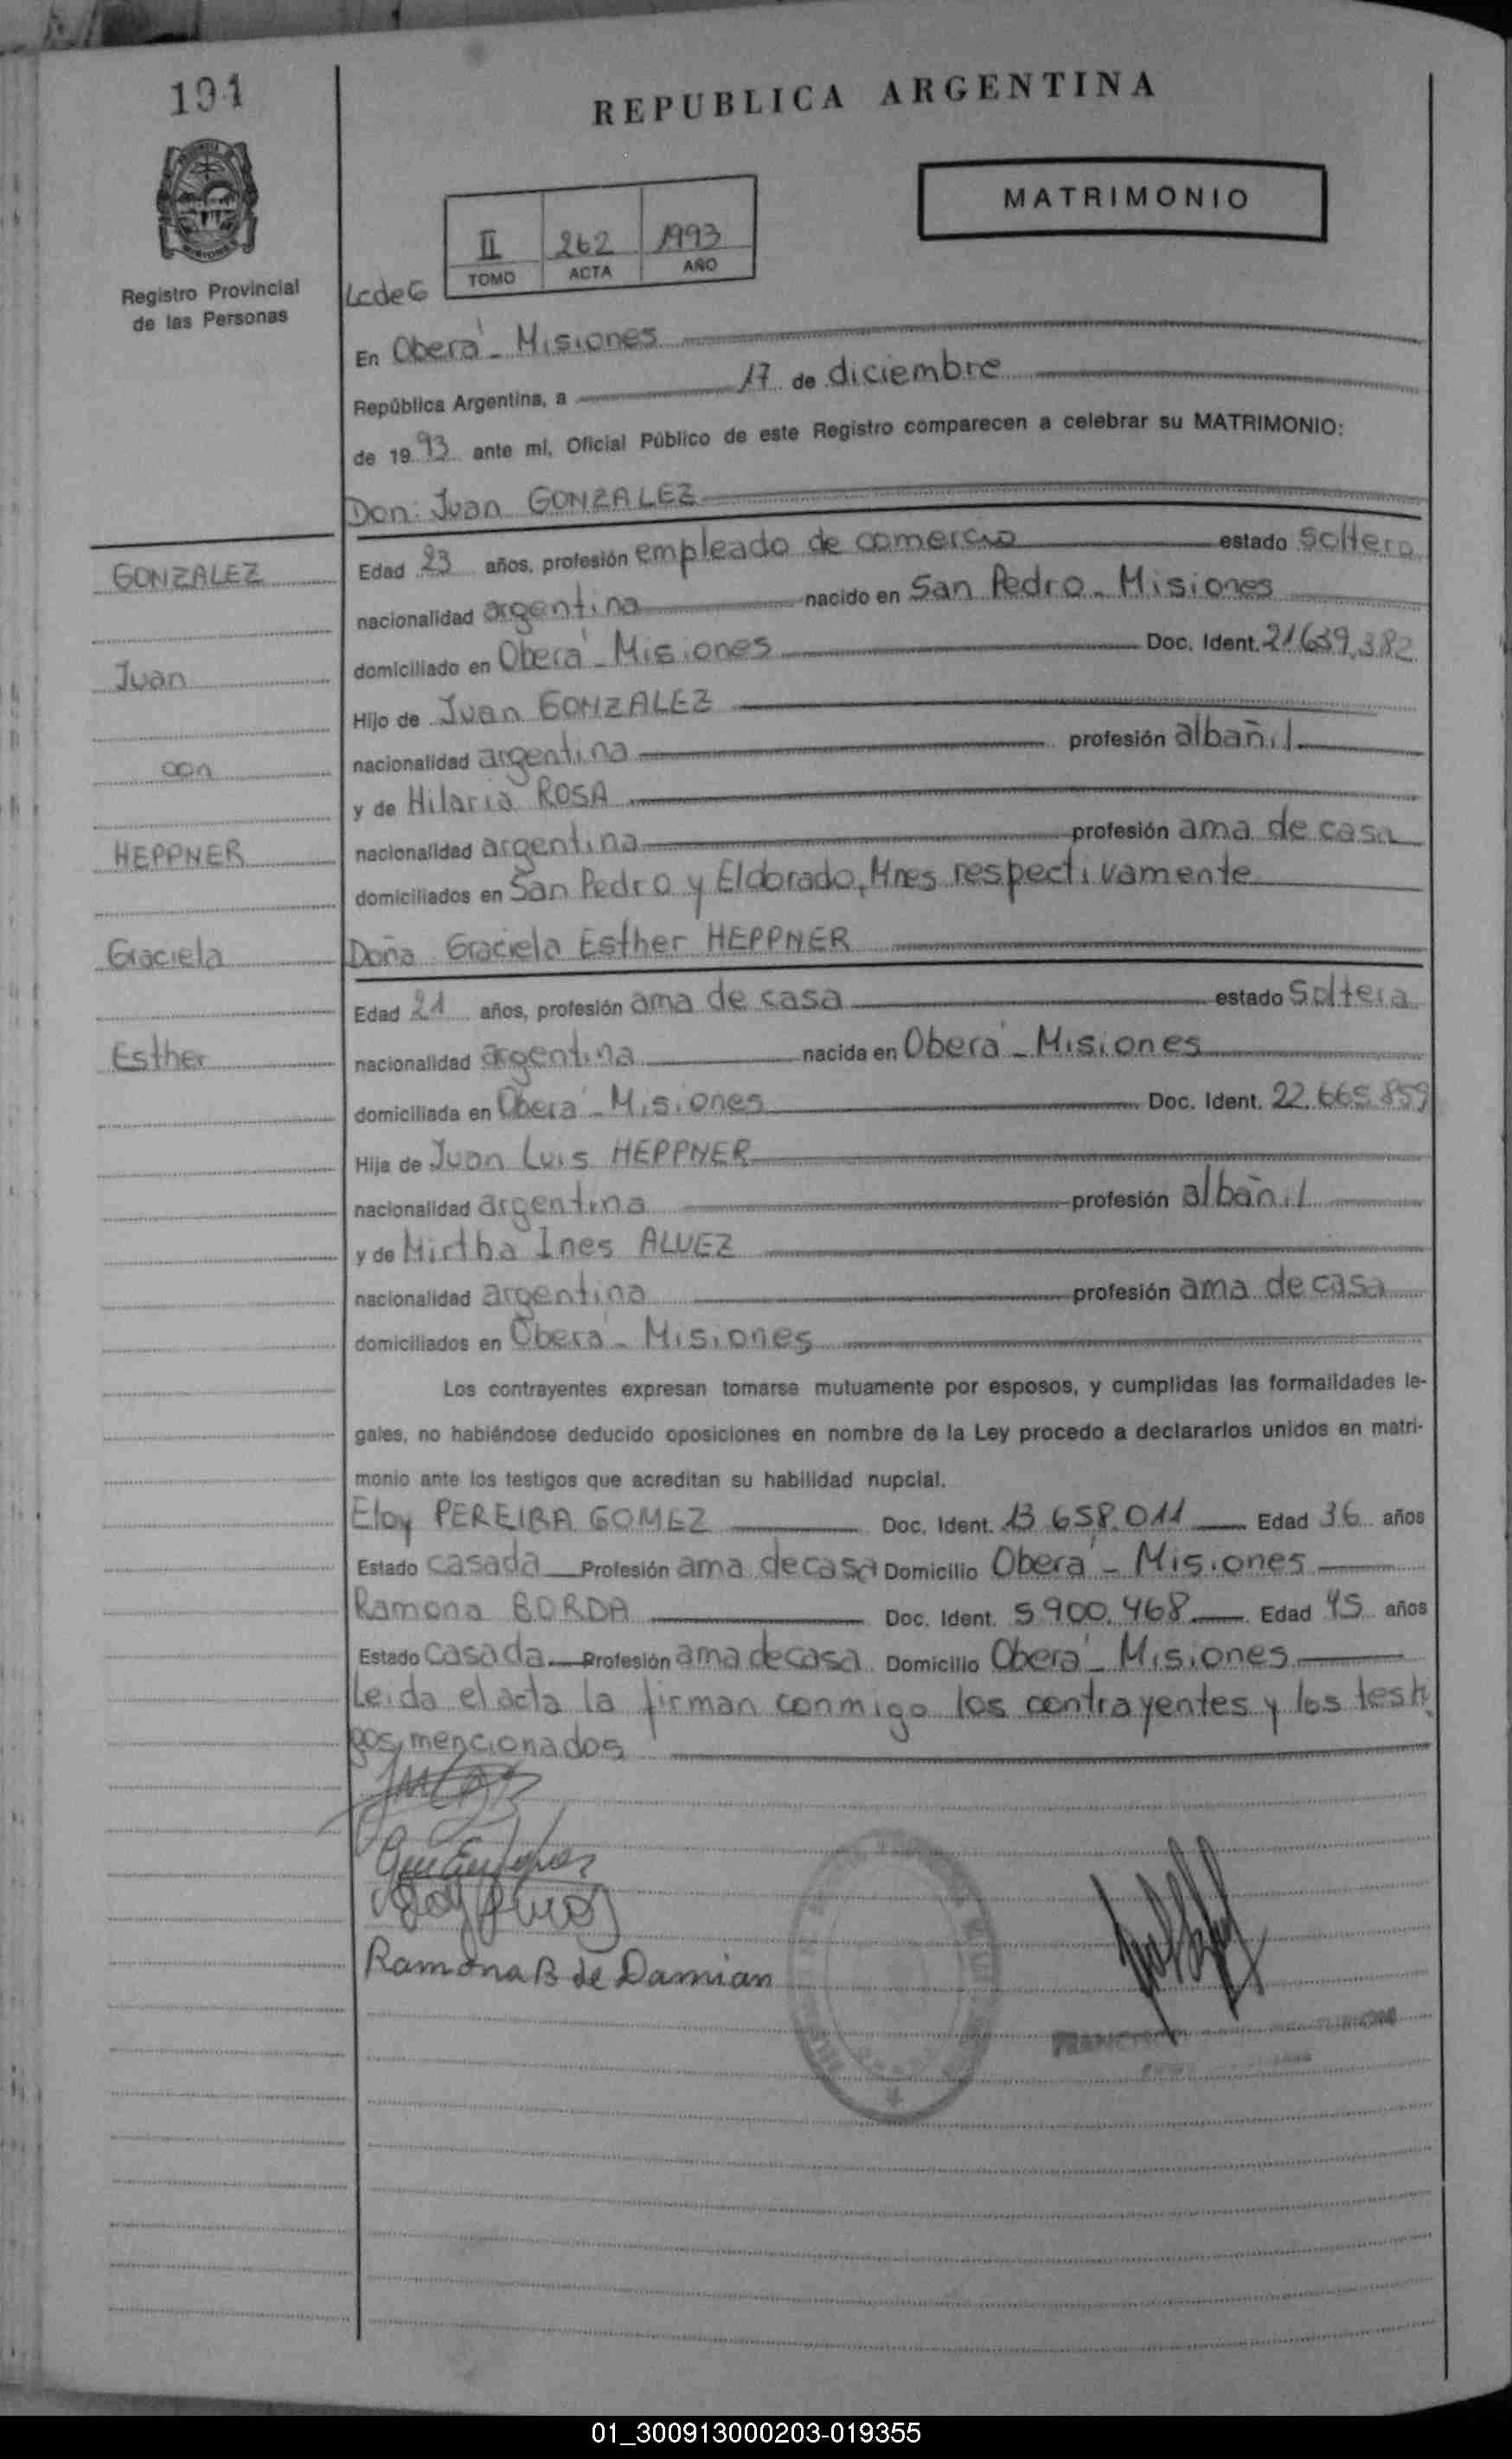 191
REPUBLICA ARGENTINA
MATRIMONIO
II 262 1993
TOMO ACTA AÑO
Registro Provincial
de las Personas
LcdeG
En Oberá - Misiones
República Argentina, a 17 de diciembre
de 1993 ante mí, Oficial Público de este Registro comparecen a celebrar su MATRIMONIO:
Don: Juan GONZALEZ
GONZALEZ
Edad 23 años, profesión empleado de comercio estado soltero
nacionalidad argentina nacido en San Pedro - Misiones
Juan
domiciliado en Oberá - Misiones Doc. Ident. 21.639.382
Hijo de Juan GONZALEZ
con
nacionalidad argentina profesión albañil
y de Hilaria ROSA
HEPPNER
nacionalidad argentina profesión ama de casa
domiciliados en San Pedro y Eldorado, Mnes respectivamente
Graciela
Doña Graciela Esther HEPPNER
Edad 21 años, profesión ama de casa estado soltera
Esther
nacionalidad argentina nacida en Oberá - Misiones
domiciliada en Oberá - Misiones Doc. Ident. 22.665.859
Hija de Juan Luis HEPPNER
nacionalidad argentina profesión albañil
y de Mirtha Ines ALVEZ
nacionalidad argentina profesión ama de casa
domiciliados en Oberá - Misiones
Los contrayentes expresan tomarse mutuamente por esposos, y cumplidas las formalidades le-
gales, no habiéndose deducido oposiciones en nombre de la Ley procedo a declararlos unidos en matri-
monio ante los testigos que acreditan su habilidad nupcial.
Eloy PEREIRA GOMEZ Doc. Ident. 13.658.011 Edad 36 años
Estado casada Profesión ama de casa Domicilio Oberá - Misiones
Ramona BORDA Doc. Ident. 5.900.468 Edad 45 años
Estado casada Profesión ama de casa Domicilio Oberá - Misiones
Leida el acta la firman conmigo los contrayentes y los testi
gos mencionados
Ramona B de Damian
01_300913000203-019355